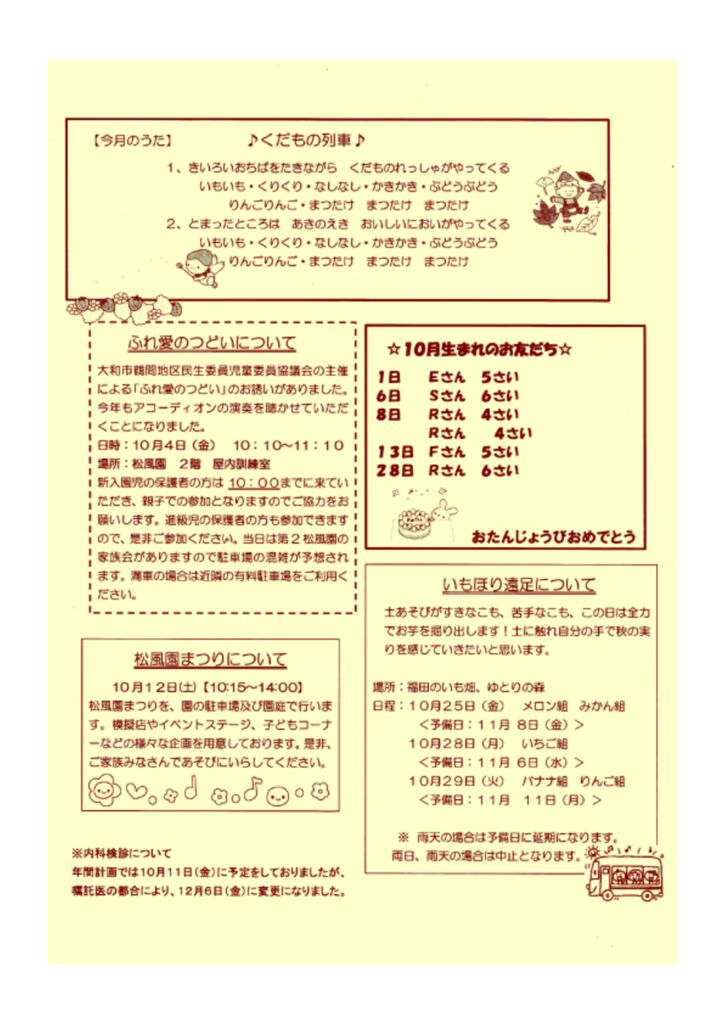 【今月のうた】　♪くだもの列車♪
1、きいろいおちばをたきながら　くだものれっしゃがやってくる
いもいも・くりくり・なしなし・かきかき・ぶどうぶどう
りんごりんご・まつたけ　まつたけ　まつたけ
2、とまったところは　あきのえき　おいしいにおいがやってくる
いもいも・くりくり・なしなし・かきかき・ぶどうぶどう
りんごりんご・まつたけ　まつたけ　まつたけ
ふれ愛のつどいについて
大和市鶴間地区民生委員児童委員協議会の主催
による「ふれ愛のつどい」のお誘いがありました。
今年もアコーディオンの演奏を聴かせていただ
くことになりました。
日時：10月4日（金）　10：10～11：10
場所：松風園　2階　屋内訓練室
新入園児の保護者の方は 10：00までに来てい
ただき、親子での参加となりますのでご協力をお
願いします。進級児の保護者の方も参加できます
ので、是非ご参加ください。当日は第2松風園の
家族会がありますので駐車場の混雑が予想され
ます。満車の場合は近隣の有料駐車場をご利用く
ださい。
☆10月生まれのお友だち☆
1日　Eさん　5さい
6日　Sさん　6さい
8日　Rさん　4さい
Rさん　4さい
13日　Fさん　5さい
28日　Rさん　6さい
おたんじょうびおめでとう
松風園まつりについて
10月12日(土)【10:15～14:00】
松風園まつりを、園の駐車場及び園庭で行いま
す。模擬店やイベントステージ、子どもコーナ
ーなどの様々な企画を用意しております。是非、
ご家族みなさんであそびにいらしてください。
いもほり遠足について
土あそびがすきなこも、苦手なこも、この日は全力
でお芋を掘り出します！土に触れ自分の手で秋の実
りを感じていきたいと思います。
場所：福田のいも畑、ゆとりの森
日程：10月25日（金）　メロン組　みかん組
＜予備日：11月 8日（金）＞
10月28日（月）　いちご組
＜予備日：11月 6日（水）＞
10月29日（火）　バナナ組　りんご組
＜予備日：11月　11日（月）＞
※ 雨天の場合は予備日に延期になります。
両日、雨天の場合は中止となります。
※内科検診について
年間計画では10月11日(金)に予定をしておりましたが、
嘱託医の都合により、12月6日(金)に変更になりました。